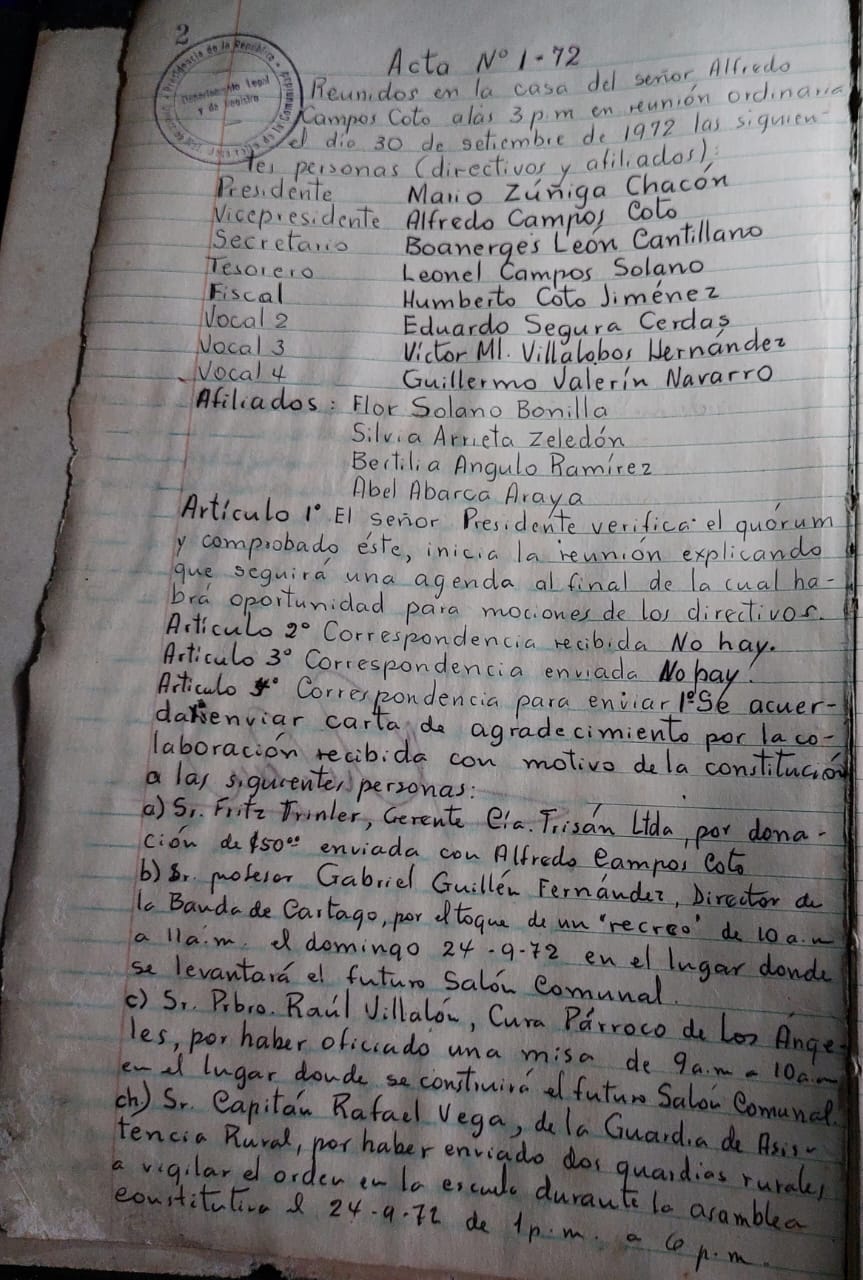 2
Presidencia de la República
Departamento Legal
y de Registro
Acta Nº 1-72
Reunidos en la casa del señor Alfredo
Campos Coto a las 3 p.m en reunión ordinaria
el día 30 de setiembre de 1972 las siguien-
tes personas (directivos y afiliados):
Presidente Mario Zúñiga Chacón
Vicepresidente Alfredo Campos Coto
Secretario Boanerges León Cantillano
Tesorero Leonel Campos Solano
Fiscal Humberto Coto Jiménez
Vocal 2 Eduardo Segura Cerdas
Vocal 3 Víctor Ml. Villalobos Hernández
Vocal 4 Guillermo Valerín Navarro
Afiliados: Flor Solano Bonilla
Silvia Arrieta Zeledón
Bertilia Angulo Ramírez
Abel Abarca Araya
Artículo 1º El señor Presidente verifica el quórum
y comprobado éste, inicia la reunión explicando
que seguirá una agenda al final de la cual ha-
brá oportunidad para mociones de los directivos.
Artículo 2º Correspondencia recibida No hay.
Artículo 3º Correspondencia enviada No hay.
Artículo 4º Correspondencia para enviar 1º Se acuer-
da enviar carta de agradecimiento por la co-
laboración recibida con motivo de la constitución
a las siguientes personas:
a) Sr. Fritz Trinler, Gerente Cía. Trisán Ltda, por dona-
ción de ₡50.00 enviada con Alfredo Campos Coto
b) Sr. profesor Gabriel Guillén Fernández, Director de
la Banda de Cartago, por el toque de un "recreo" de 10 a.m
a 11 a.m. el domingo 24-9-72 en el lugar donde
se levantará el futuro Salón Comunal.
c) Sr. Prbro. Raúl Villalón, Cura Párroco de Los Ánge-
les, por haber oficiado una misa de 9 a.m a 10 a.m
en el lugar donde se construirá el futuro Salón Comunal.
ch) Sr. Capitán Rafael Vega, de la Guardia de Asis-
tencia Rural, por haber enviado dos guardias rurales
a vigilar el orden en la escuela durante la asamblea
constitutiva el 24-9-72 de 1 p.m. a 6 p.m.